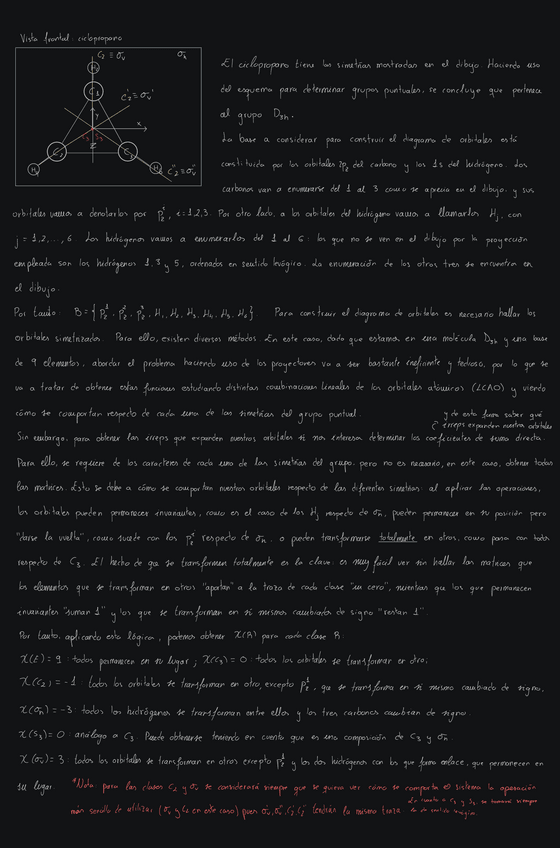 Vista frontal: ciclopropano
C₂ ≡ σᵥ
σₕ
H₂
C₁
C₂' ≡ σᵥ'
y
x
z
S₃
S₃
C₂
C₃
H₄
H₆
C₂'' ≡ σᵥ''
El ciclopropano tiene las simetrías mostradas en el dibujo. Haciendo uso
del esquema para determinar grupos puntuales, se concluye que pertenece
al grupo D₃ₕ.
La base a considerar para construir el diagrama de orbitales está
constituida por los orbitales 2p_z del carbono y los 1s del hidrógeno. Los
carbonos van a enumerarse del 1 al 3 como se aprecia en el dibujo, y sus
orbitales vamos a denotarlos por p_z^i, i=1,2,3. Por otro lado, a los orbitales del hidrógeno vamos a llamarlos H_j, con
j = 1,2,..., 6. Los hidrógenos vamos a enumerarlos del 1 al 6: los que no se ven en el dibujo por la proyección
empleada son los hidrógenos 1, 3 y 5, ordenados en sentido levógiro. La enumeración de los otros tres se encuentra en
el dibujo.
Por tanto: B = { p_z^1, p_z^2, p_z^3, H₁, H₂, H₃, H₄, H₅, H₆ }. Para construir el diagrama de orbitales es necesario hallar los
orbitales simetrizados. Para ello, existen diversos métodos. En este caso, dado que estamos en una molécula D₃ₕ y una base
de 9 elementos, abordar el problema haciendo uso de los proyectores va a ser bastante ineficiente y tedioso, por lo que se
va a tratar de obtener estas funciones estudiando distintas combinaciones lineales de los orbitales atómicos (LCAO) y viendo
cómo se comportan respecto de cada una de las simetrías del grupo puntual.
y de esta forma saber qué
irreps expanden nuestros orbitales
Sin embargo, para obtener las irreps que expanden nuestros orbitales sí nos interesa determinar los coeficientes de suma directa.
Para ello, se requiere de los caracteres de cada una de las simetrías del grupo, pero no es necesario, en este caso, obtener todas
las matrices. Esto se debe a cómo se comportan nuestros orbitales respecto de las diferentes simetrías: al aplicar las operaciones,
los orbitales pueden permanecer invariantes, como es el caso de los H_j respecto de σᵥ, pueden permanecer en su posición pero
"darse la vuelta", como sucede con los p_z^i respecto de σₕ, o pueden transformarse totalmente en otros, como pasa con todos
respecto de C₃. El hecho de que se transformen totalmente es la clave: es muy fácil ver sin hallar las matrices que
los elementos que se transforman en otros "aportan" a la traza de cada clase "un cero", mientras que los que permanecen
invariantes "suman 1" y los que se transforman en sí mismos cambiados de signo "restan 1".
Por tanto, aplicando esta lógica, podemos obtener χ(R) para cada clase R:
χ(E) = 9: todos permanecen en su lugar; χ(C₃) = 0: todos los orbitales se transforman en otro;
χ(C₂) = -1: todos los orbitales se transforman en otro, excepto p_z^1, que se transforma en sí mismo cambiado de signo.
χ(σₕ) = -3: todos los hidrógenos se transforman entre ellos y los tres carbonos cambian de signo.
χ(S₃) = 0: análogo a C₃. Puede obtenerse teniendo en cuenta que es una composición de C₃ y σₕ.
χ(σᵥ) = 3: todos los orbitales se transforman en otros excepto p_z^1 y los dos hidrógenos con los que forma enlace, que permanecen en
su lugar.
*Nota: para las clases C₂ y σᵥ se considerará siempre que se quiera ver cómo se comporta el sistema la operación
más sencilla de utilizar (σᵥ y C₂ en este caso) pues σᵥ', σᵥ'', C₂', C₂'' tendrán la misma traza.
En cuanto a C₃ y S₃, se tomará siempre
la de sentido levógiro.